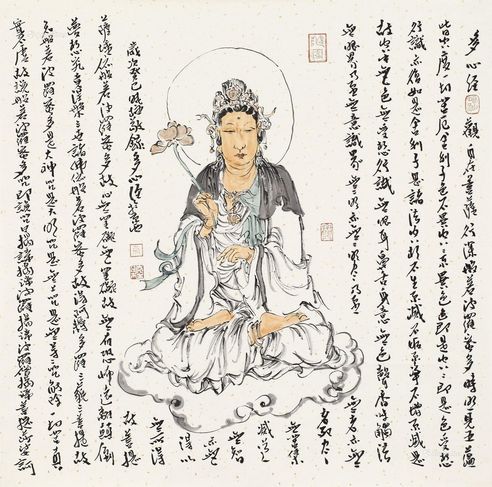 多心經 觀自在菩薩行深般若波羅蜜多時照見五蘊
皆空度一切苦厄舍利子色不異空空不異色色即是空空即是色受想
行識亦復如是舍利子是諸法空相不生不滅不垢不淨不增不減是
故空中無色無受想行識無眼耳鼻舌身意無色聲香味觸法
無眼界乃至無意識界無無明亦無無明盡乃至無老死亦無
老死盡
無苦集
滅道
無智
亦無
得以
無所得
故菩提
薩埵依般若波羅蜜多故心無罣礙無罣礙故無有恐怖遠離顛倒
夢想究竟涅槃三世諸佛依般若波羅蜜多故得阿耨多羅三藐三菩提故
知般若波羅蜜多是大神咒是大明咒是無上咒是無等等咒能除一切苦真
實不虛故說般若波羅蜜多咒即說咒曰揭諦揭諦波羅揭諦波羅僧揭諦菩提薩婆訶
歲次癸巳敬錄多心經